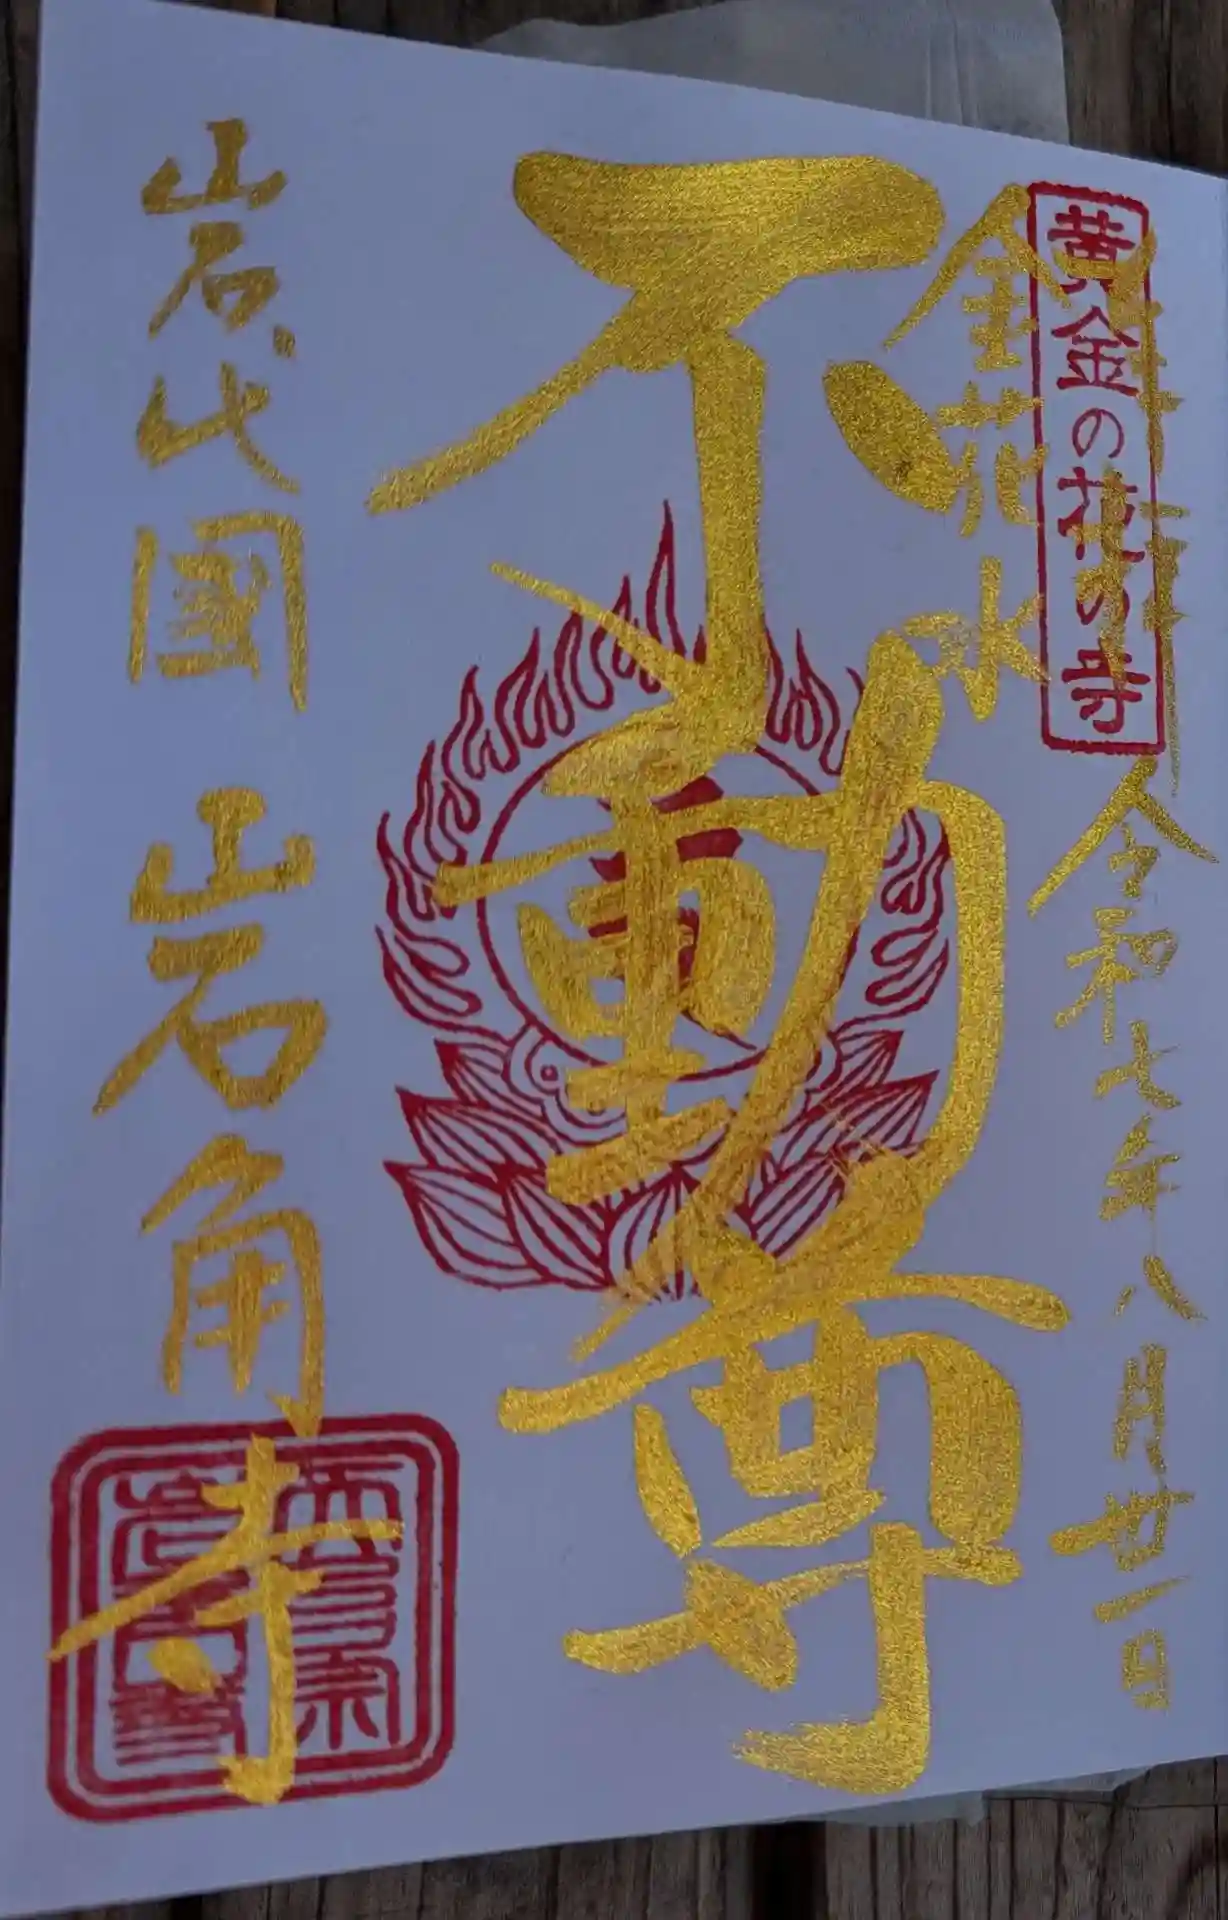 奉拝
黄金の花の寺
金花水
令和七年八月廿一日
不動尊
岩代國 岩角寺